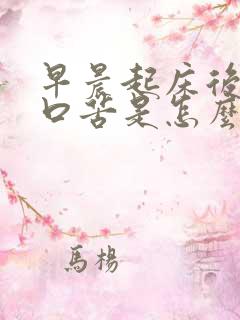 早晨起床後
口苦是怎麼
馬楊